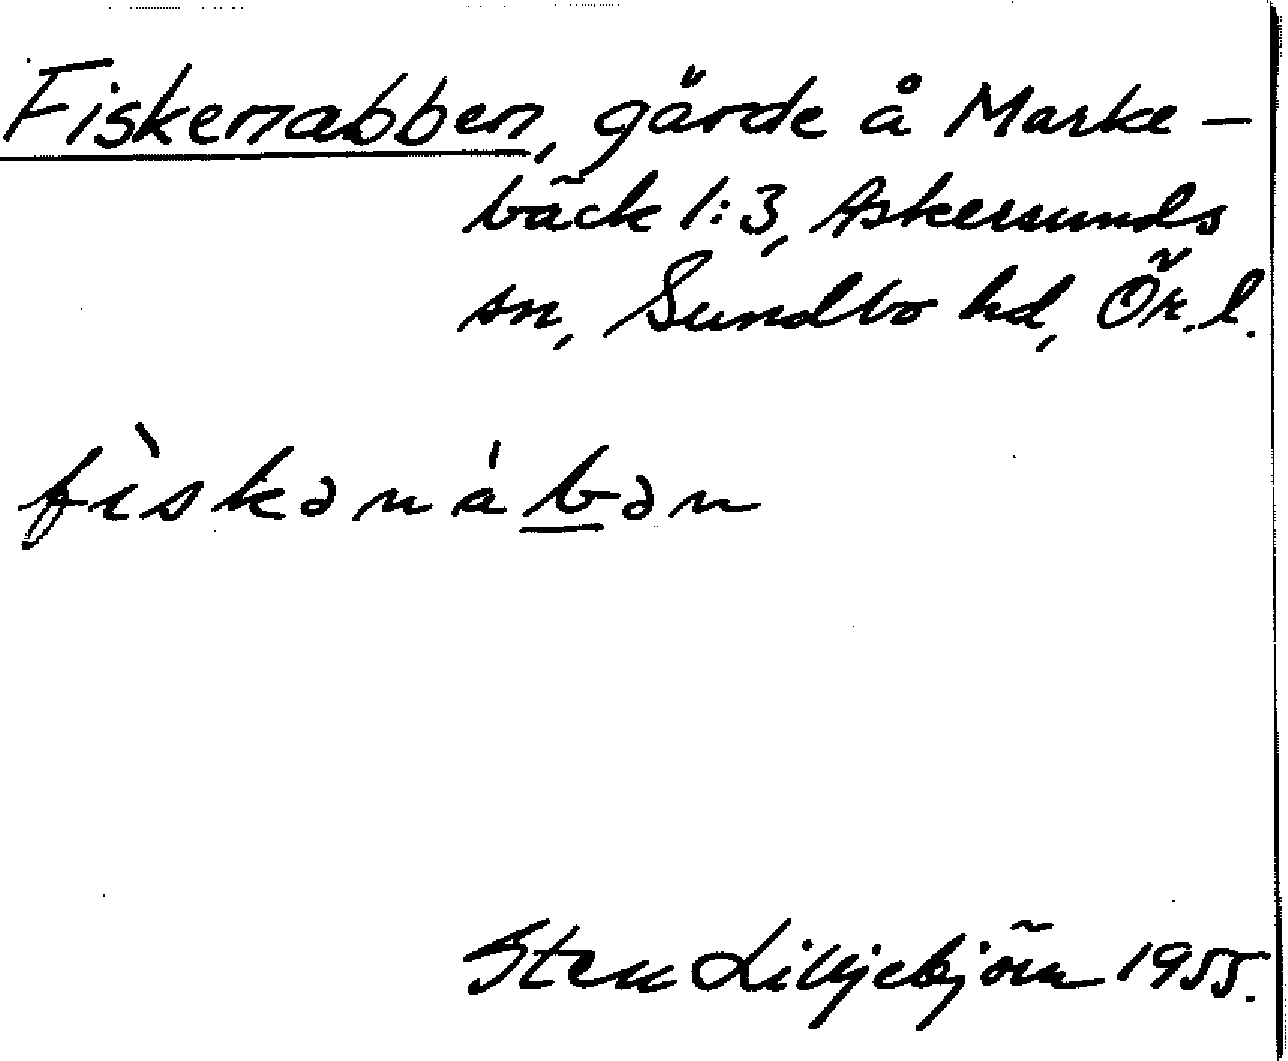 Fiskenabben, gärde å Marke-
bäck 1:3, Askersunds
sn, Sundbo hd, Ör. l.
fìskənábən
Sten Lilljebjörn 1955.